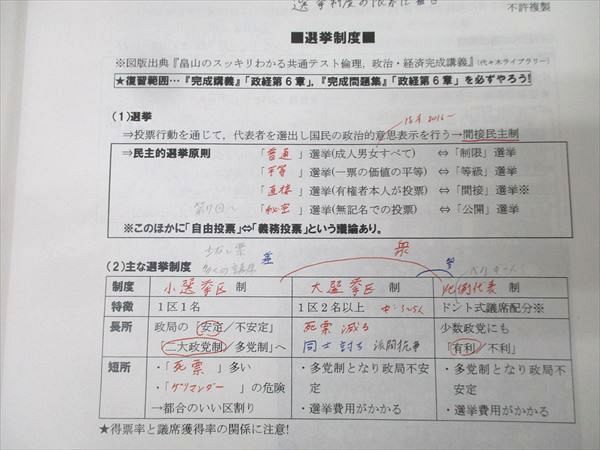 選挙制度の限界に着目
不許複製
■選挙制度■
※図版出典『畠山のスッキリわかる共通テスト倫理，政治・経済完成講義』(代々木ライブラリー)
★復習範囲…『完成講義』「政経第６章」，『完成問題集』「政経第６章」を必ずやろう!
(1)選挙
18才 2016～
⇒投票行動を通じて，代表者を選出し国民の政治的意思表示を行う→間接民主制
⇒民主的選挙原則 「普通」選挙(成人男女すべて) ⇔「制限」選挙
「平等」選挙(一票の価値の平等) ⇔「等級」選挙
「直接」選挙(有権者本人が投票) ⇔「間接」選挙※
「秘密」選挙(無記名での投票) ⇔「公開」選挙
※このほかに「自由投票」⇔「義務投票」という議論あり。
衆
(2)主な選挙制度
制度 小選挙区 制 大選挙区 制 比例代表 制
特徴 1区1名 1区2名以上 中:3~5人 ドント式議席配分※
長所 政局の「安定/不安定」 死票 減る 少数政党にも
「二大政党制/多党制」へ 同士討ち 派閥抗争 「有利/不利」
短所 ・「死票」多い ・多党制となり政局不安定 ・多党制となり政局不安定
・「ゲリマンダー」の危険
→都合のいい区割り ・選挙費用がかかる ・選挙費用がかかる
★得票率と議席獲得率の関係に注意!